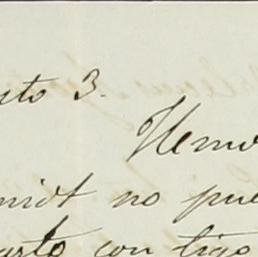 sto 3.
Hemo
midt no pue
arto con tigo